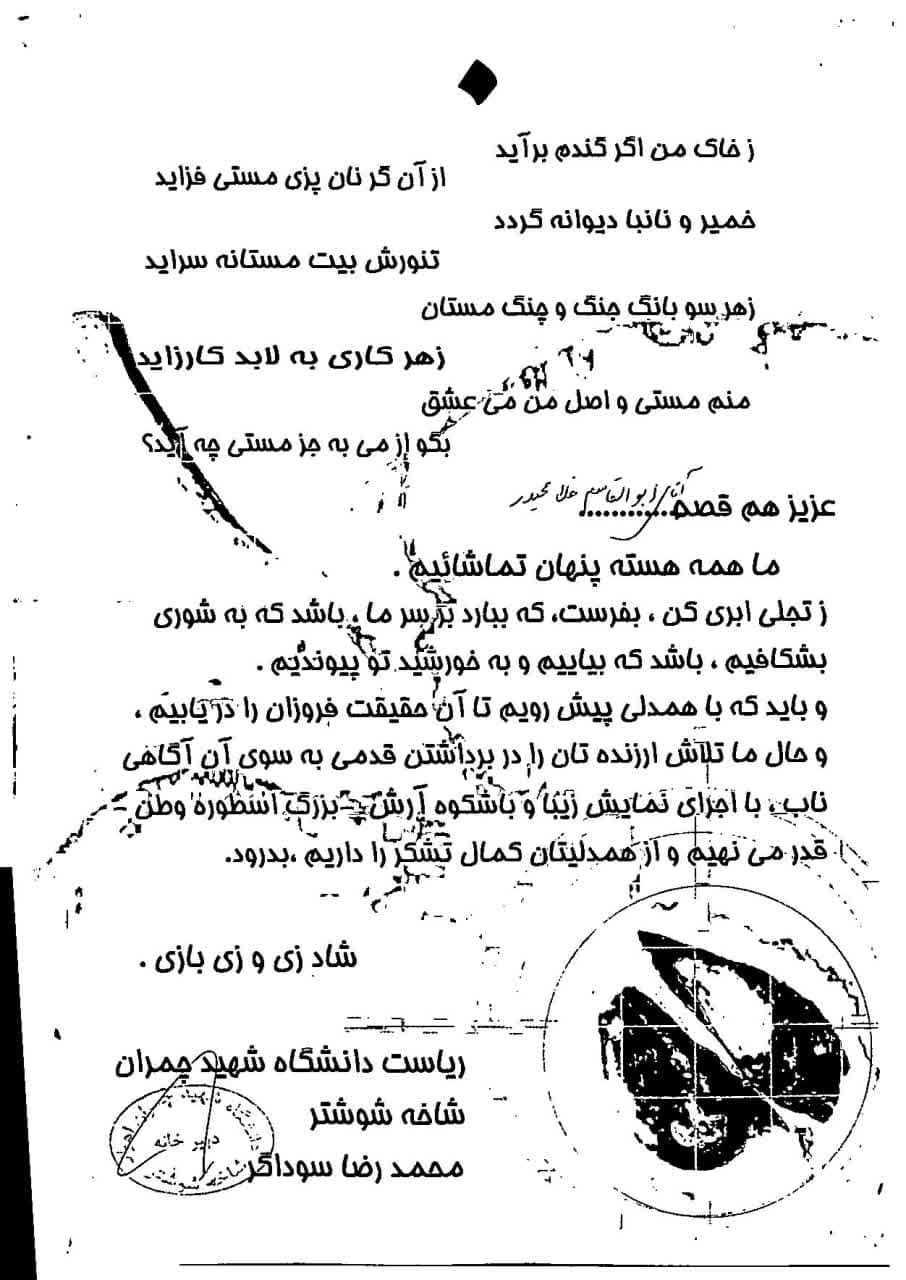 ز خاک من اگر گندم برآید
از آن گر نان پزی مستی فزاید
خمیر و نانبا دیوانه گردد
تنورش بیت مستانه سراید
زهر سو بانگ جنگ و چنگ مستان
زهر کاری به لابد کارزاید
منم مستی و اصل من می عشق
بگو از می به جز مستی چه آید؟
عزیز هم قصه............ آقای ابوالقاسم
ما همه هسته پنهان تماشائیم .
ز تجلی ابری کن ، بفرست، که ببارد بر سر ما ، باشد که به شوری
بشکافیم ، باشد که بیاییم و به خورشید تو پیوندیم .
و باید که با همدلی پیش رویم تا آن حقیقت فروزان را دریابیم ،
و حال ما تلاش ارزنده تان را در برداشتن قدمی به سوی آن آگاهی
ناب ، با اجرای نمایش زیبا و باشکوه آرش – بزرگ اسطوره وطن –
قدر می نهیم و از همدلیتان کمال تشکر را داریم ،بدرود.
شاد زی و زی بازی .
ریاست دانشگاه شهید چمران
شاخه شوشتر
محمد رضا سوداگر
دانشگاه شهید چمران اهواز
دبیر خانه
شاخه شوشتر